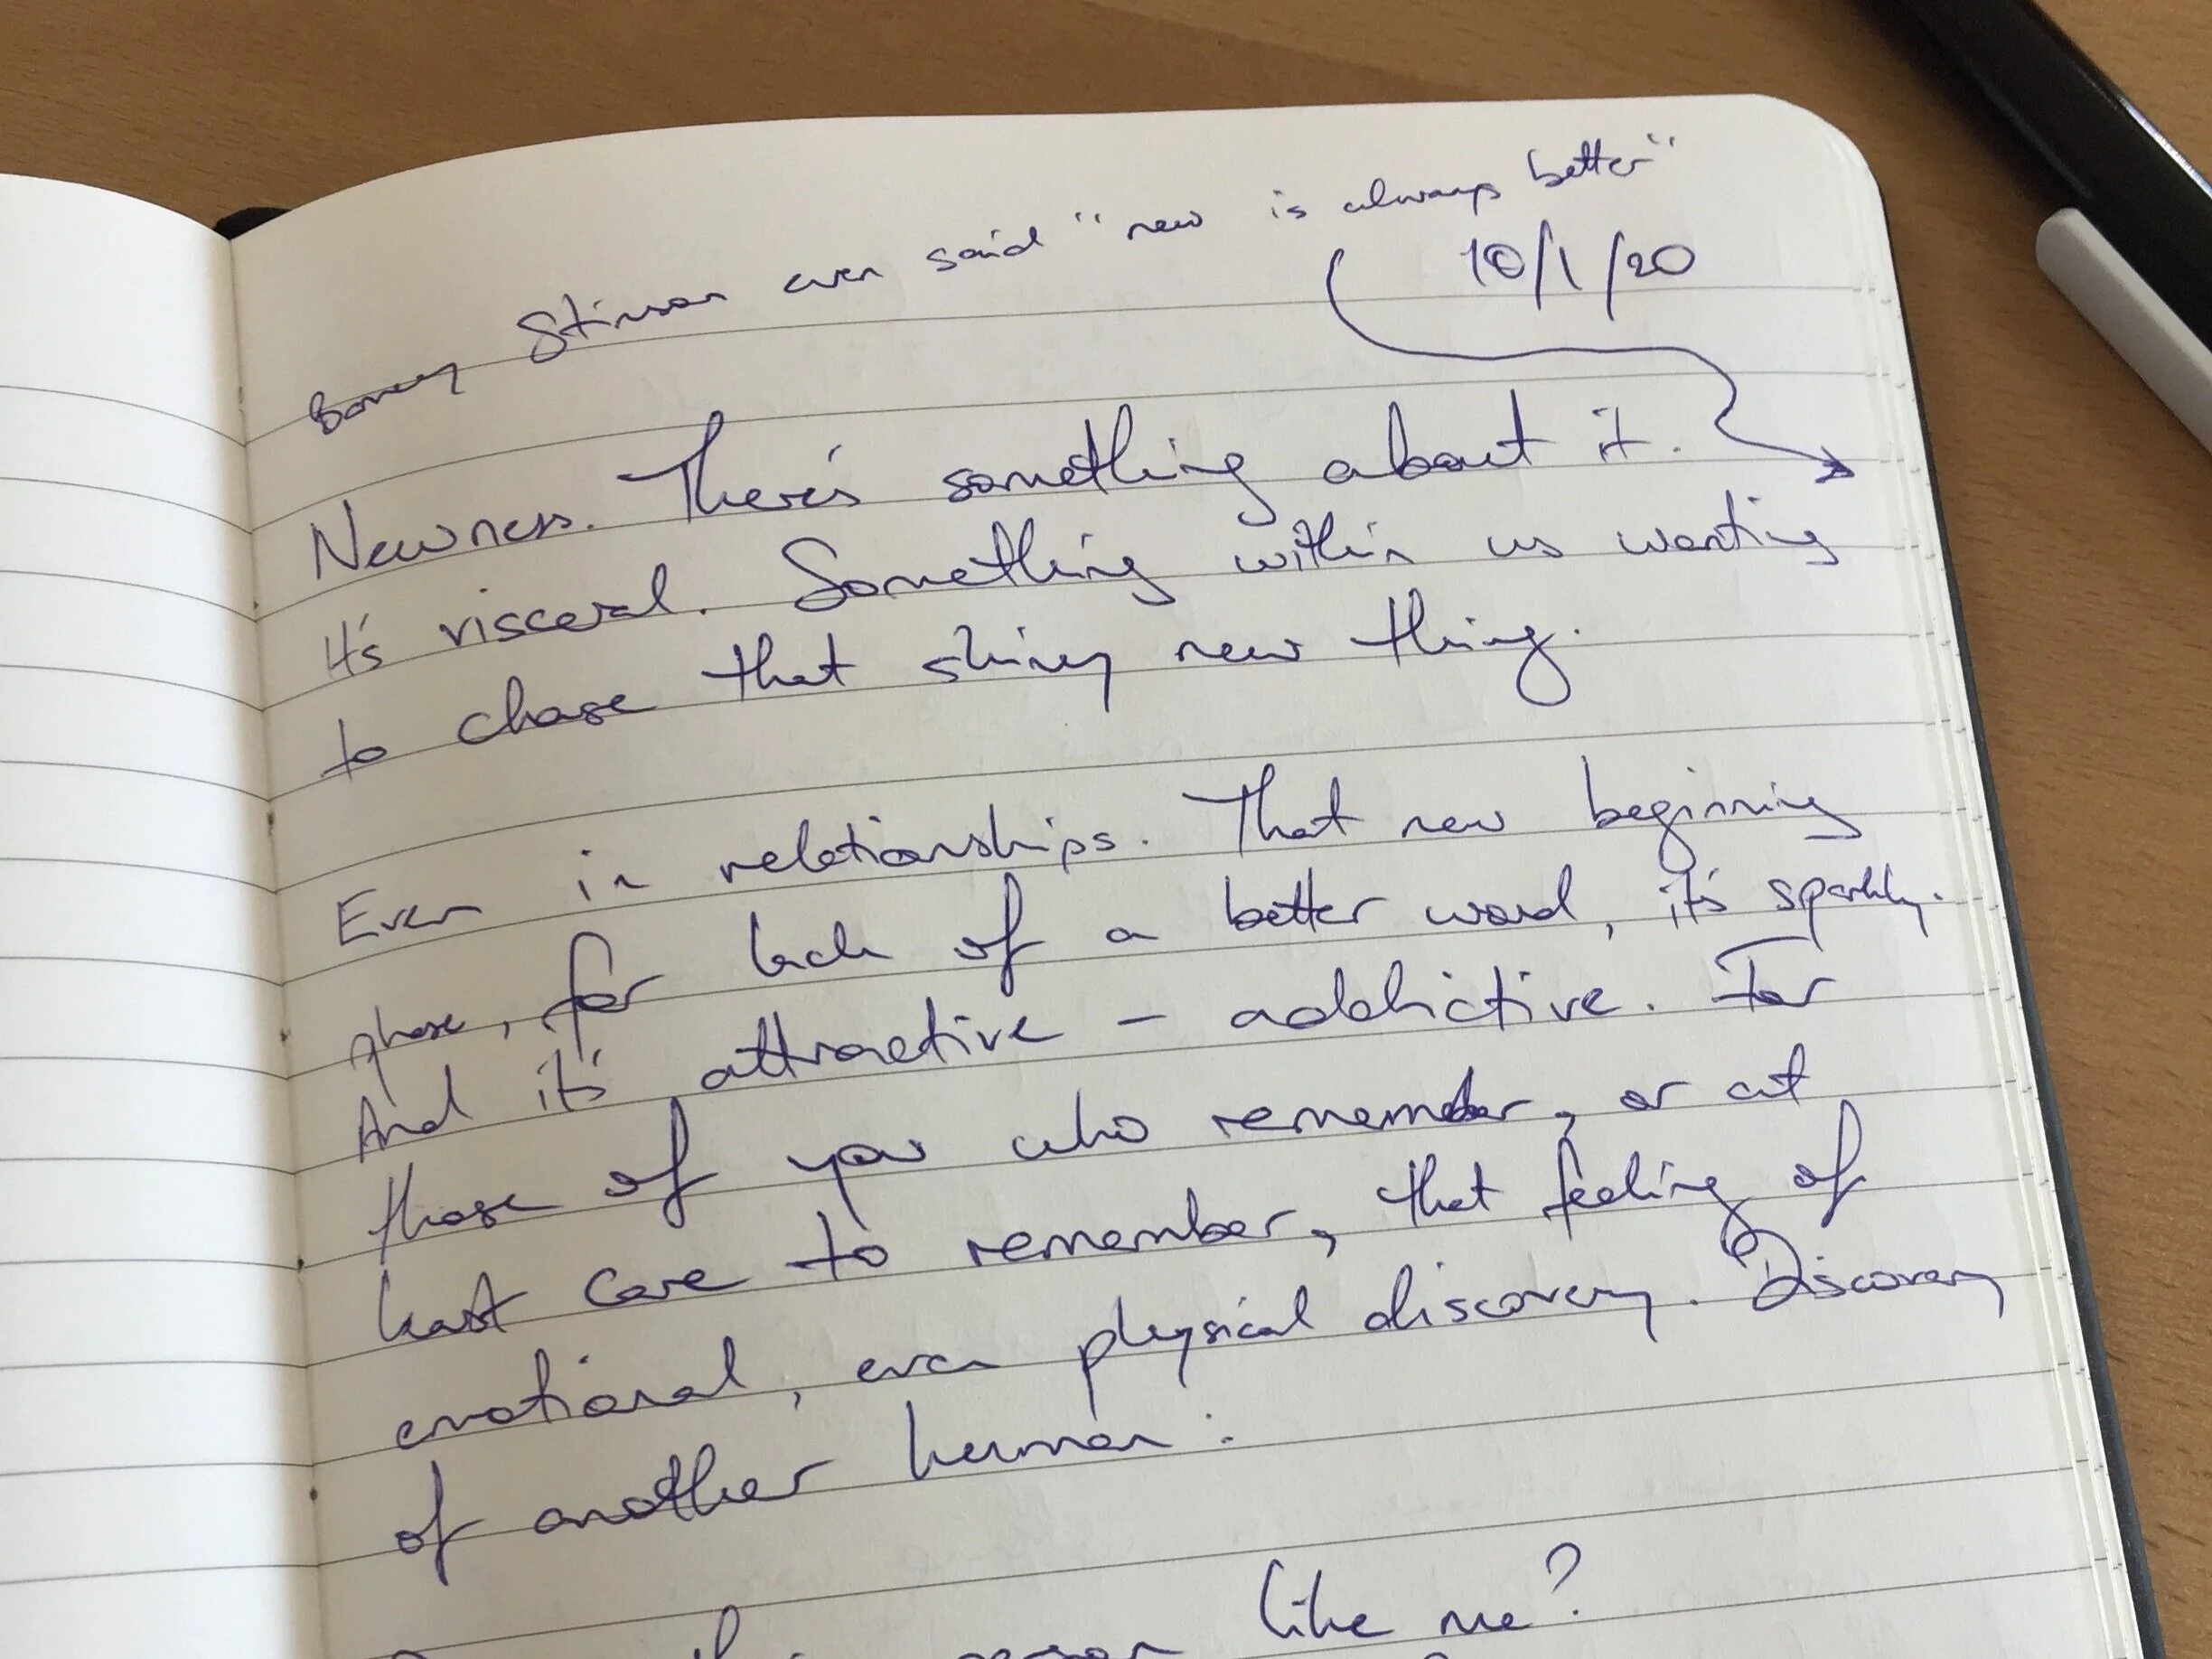 Barney Stinson even said "new is always better"
10/1/20
Newness. There's something about it.
It's visceral. Something within us wanting
to chase that shiny new thing.
Even in relationships. That new beginning
phase, for lack of a better word, it's sparkly.
And it's attractive - addictive. For
those of you who remember, or at
least care to remember, that feeling of
emotional, even physical discovery. Discovery
of another human:
person like me?